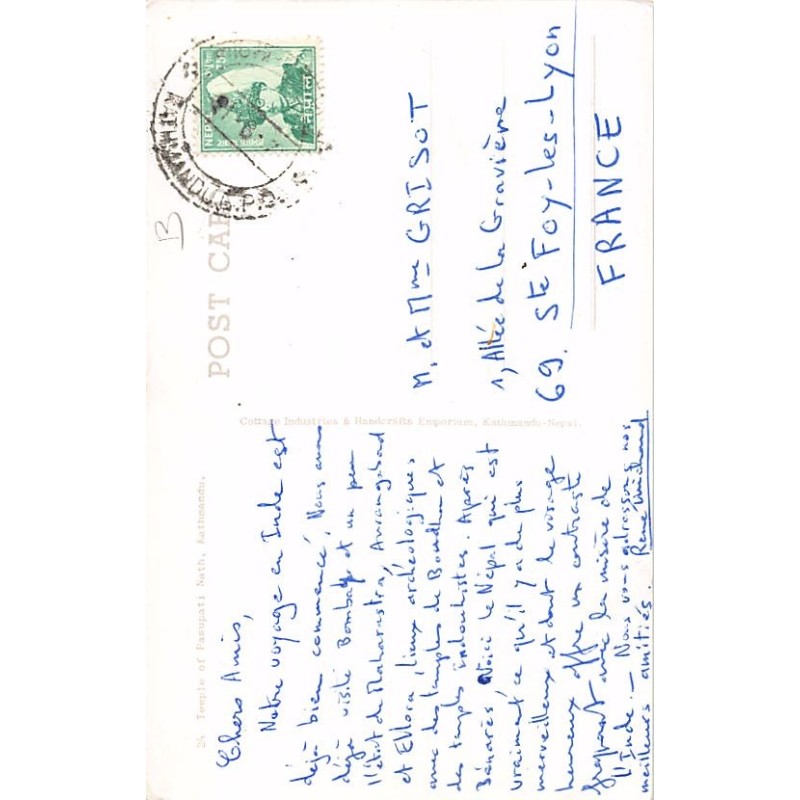 24 Temple of Pasupati Nath, Kathmandu.
Chers Amis,
Notre voyage en Inde est
déjà bien commencé, Nous avons
déjà visité Bombay et un peu
l'état de Maharastra, Aurangabad
et Ellora, lieux archéologiques
avec des temples de Boudha et
des temples indouhistes. Après
Bénarès, Voici le Népal qui est
vraiment ce qu'il y a de plus
merveilleux et dont le visage
heureux offre un contraste
frappant avec la misère de
l'Inde. - Nous vous adressons nos
meilleurs amitiés.
Cottage Industries & Handcrafts Emporium, Kathmandu-Nepal.
POST CAR
B
KATHMANDU G.P.O.
NEP
नेपाल
M. et Mme GRISOT
1, Allée de la Gravière
69. Ste Foy-les-Lyon
FRANCE